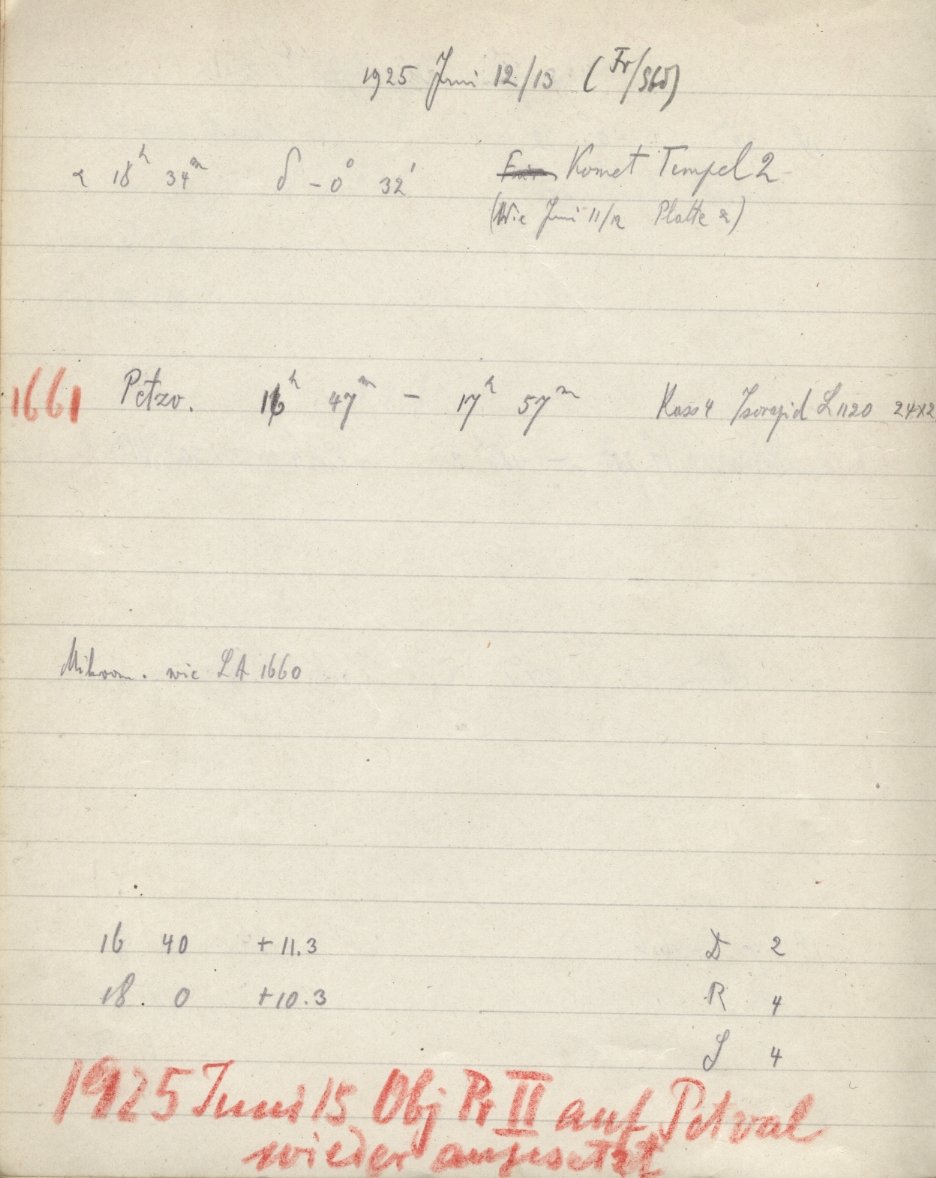 1925 Juni 12/13 (Fr/Sbd)
α 18h 34m δ -0° 32' Komet Tempel 2
(Wie Juni 11/12 Platte 2)
1661 Petzv. 16h 47m - 17h 57m Kass 4 Isorapid L 1120 24x2
Mikrom. wie LA 1660
16 40 +11.3 D 2
18. 0 +10.3 R 4
S 4
1925 Juni 15 Obj Pr II auf Petval
wieder angesetzt